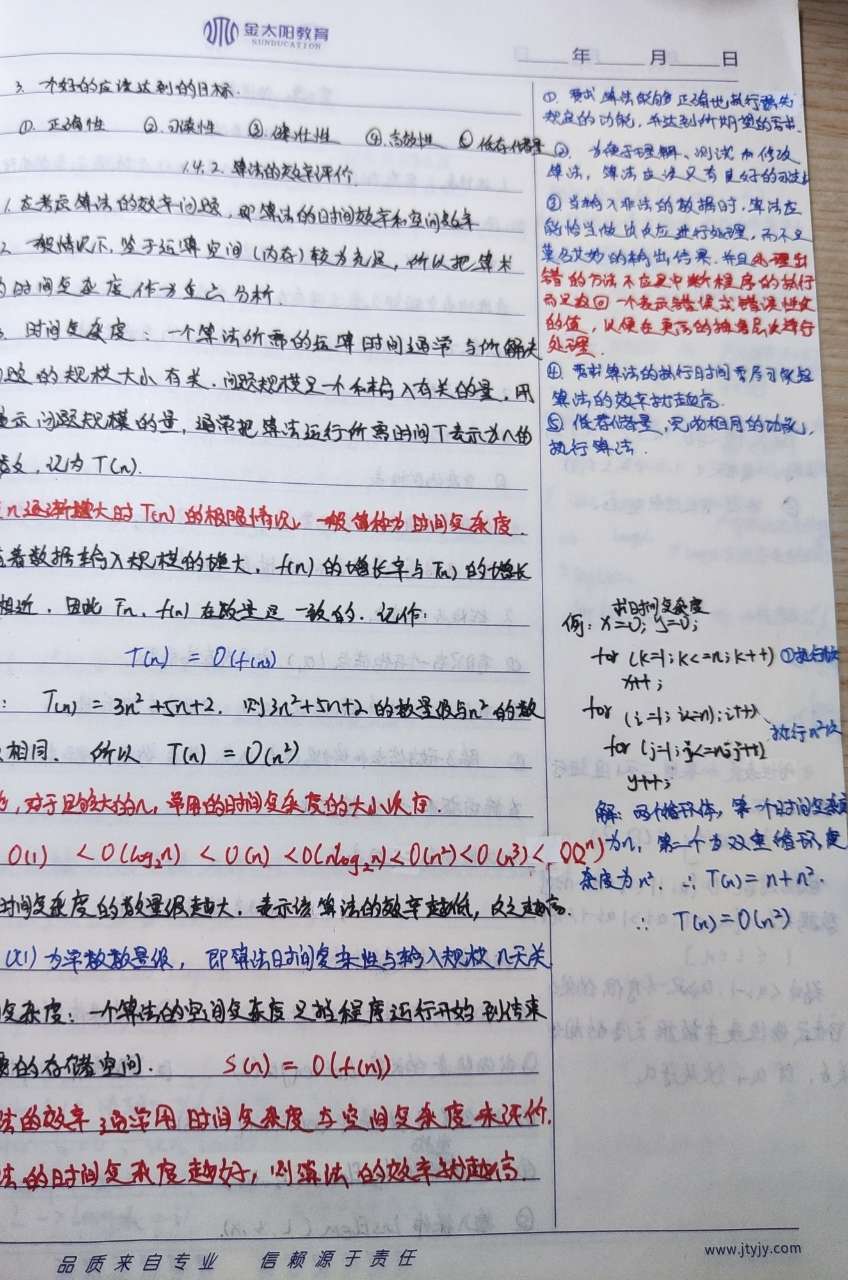 金太阳教育
SUNDUCATION
年 月 日
3. 一个好的应该达到的目标.
①. 正确性 ②. 可读性 ③. 健壮性 ④. 高效性 ⑤ 低存储量
1.4.2. 算法的效率评价
1. 在考虑算法的效率问题, 即算法的时间效率和空间效率
一般情况下, 鉴于运算空间 (内存) 较为充足, 所以把算术
时间复杂度作为重点分析.
时间复杂度: 一个算法所需的运算时间通常与所解决
题的规模大小有关. 问题规模是一个和输入有关的量, 用
表示问题规模的量, 通常把算法运行所需时间T表示为n的
函数, 记为 T(n).
n逐渐增大时 T(n) 的极限情况, 一般简称为时间复杂度.
着数据输入规模的增大, f(n) 的增长率与 T(n) 的增长
相近. 因此 Tn, f(n) 在数量是一致的. 记作:
T(n) = O(f(n))
: T(n) = 3n²+5n+2. 则3n²+5n+2 的数量级与n² 的数
相同. 所以 T(n) = O(n²)
, 对于足够大的n, 常用的时间复杂度的大小次序.
O(1) < O(log₂n) < O(n) < O(nlog₂n) < O(n²) < O(n³) < O(2ⁿ)
时间复杂度的数量级越大, 表示该算法的效率越低, 反之越高.
O(1) 为常数数量级, 即算法时间复杂性与输入规模n无关
复杂度: 一个算法的空间复杂度是指程度运行开始到结束
要的存储空间. S(n) = O(f(n))
法的效率通常用时间复杂度与空间复杂度来评价.
法的时间复杂度越好, 则算法的效率就越高.
①. 要求算法能够正确地执行预先
规定的功能, 并达到所期望的
②. 为便于理解、测试和修改
算法, 算法应该又有良好的可读
③ 当输入非法的数据时, 算法应
能恰当做出反应进行处理, 而不是
莫名其妙的输出结果. 并且处理出
错的方法不应是中断程序的执行
而是返回一个表示错误或错误性质
的值, 以便在更高的抽象层次进行
处理.
④ 要求算法的执行时间
算法的效率就越高.
⑤ 低存储量, 完成相同的功能,
执行算法.
求时间复杂度
例: x=0; y=0;
for (k=1; k<=n; k++) ①执行n次
x++;
for (i=1; i<=n; i++)
执行n²次
for (j=1; j<=n; j++)
y++;
解: 两个循环体, 第一个时间复杂度
为n, 第二个为双重循环, 复
杂度为n². ∴ T(n) = n+n².
∴ T(n)=O(n²)
品质来自专业 信赖源于责任
www.jtyjy.com